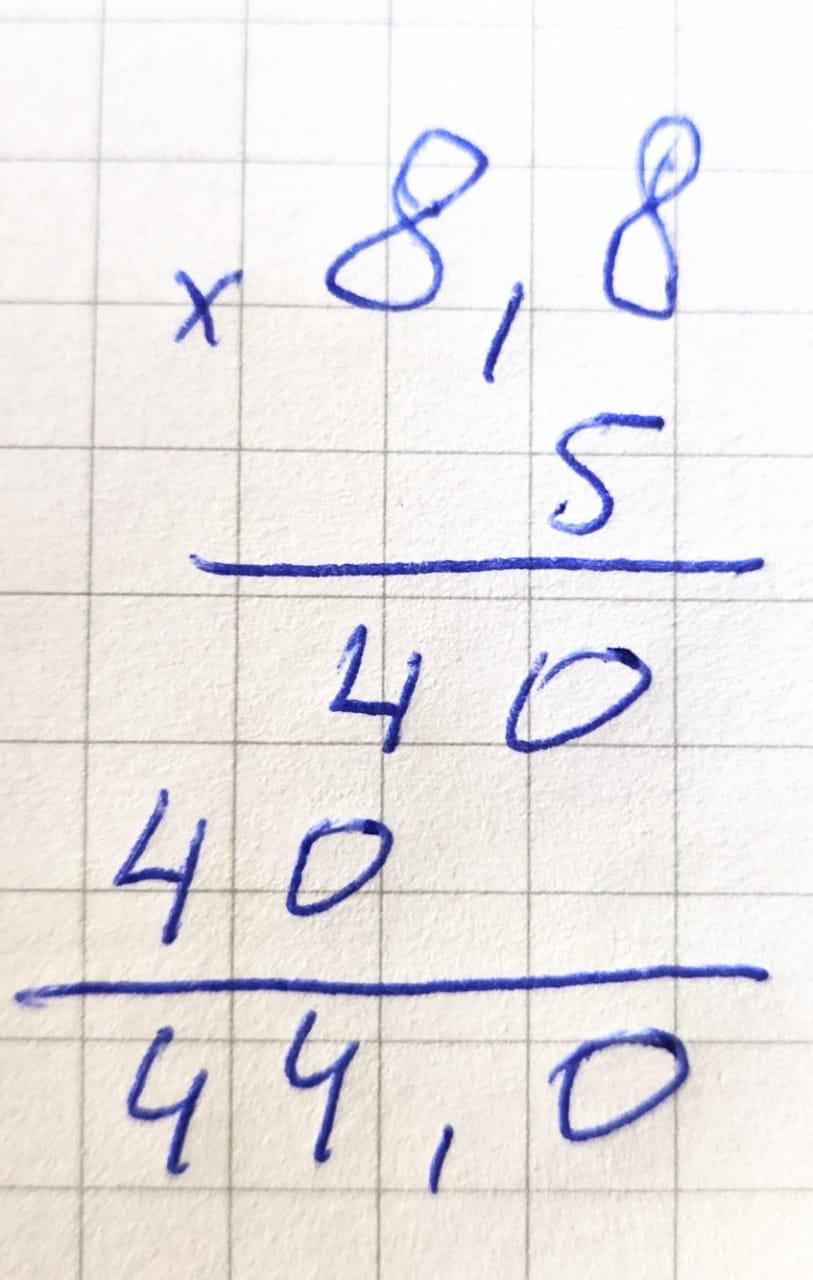 × 8,8
5
40
40
44,0